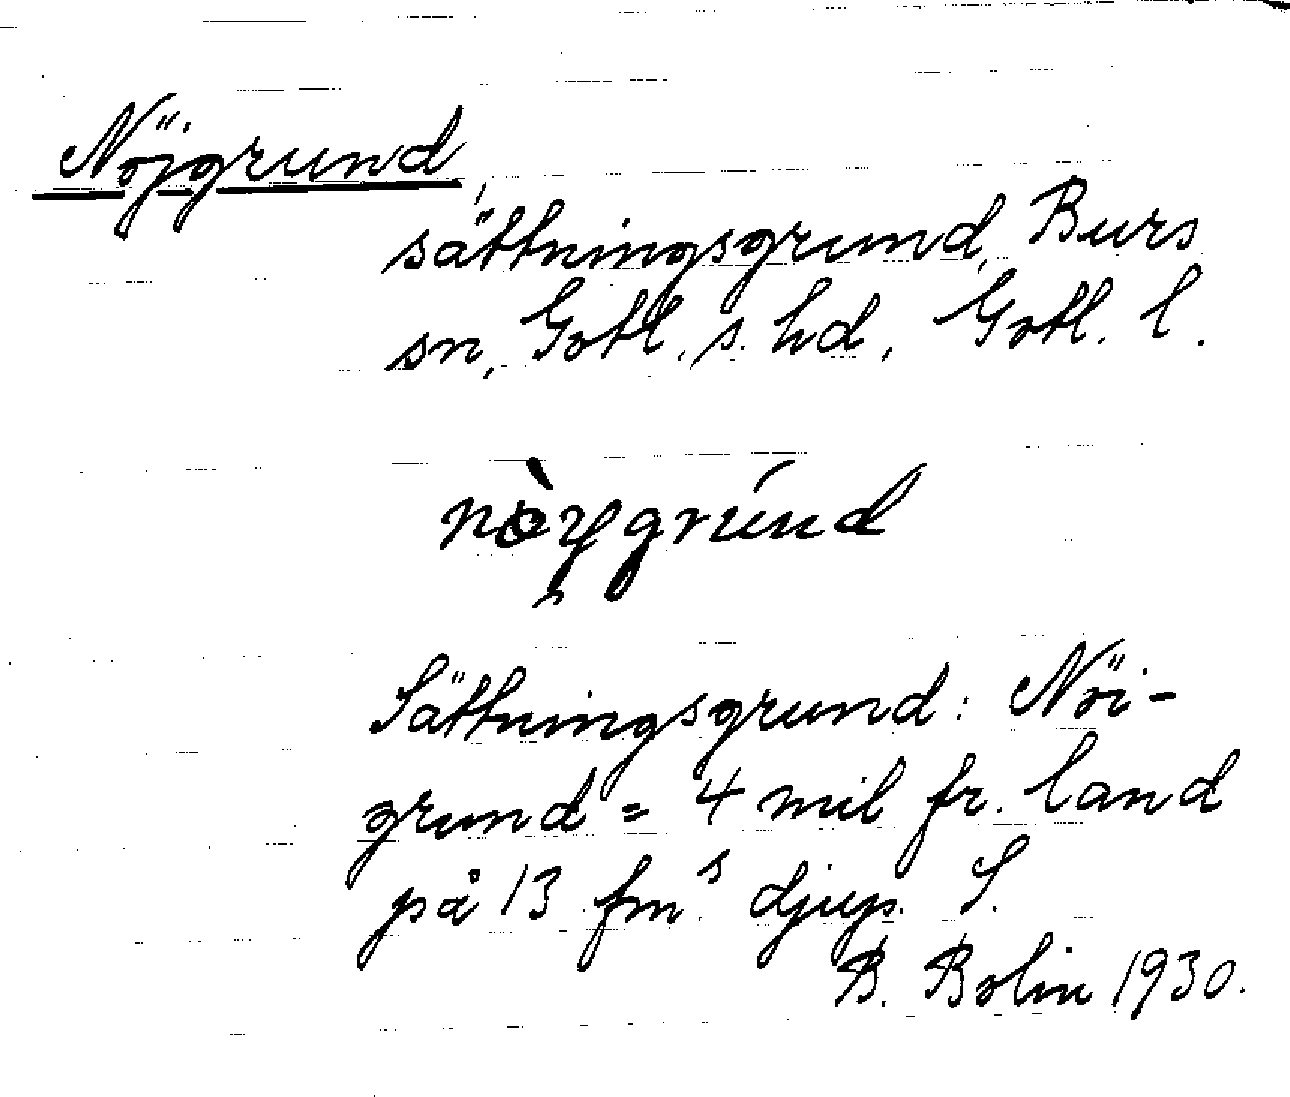 Nöjgrund,
sättningsgrund, Burs
sn, Gotl. s. hd, Gotl. l.
nòygrúnd
Sättningsgrund: Nöi-
grund = 4 mil fr. land
på 13 fms djup. S.
B. Bolin 1930.